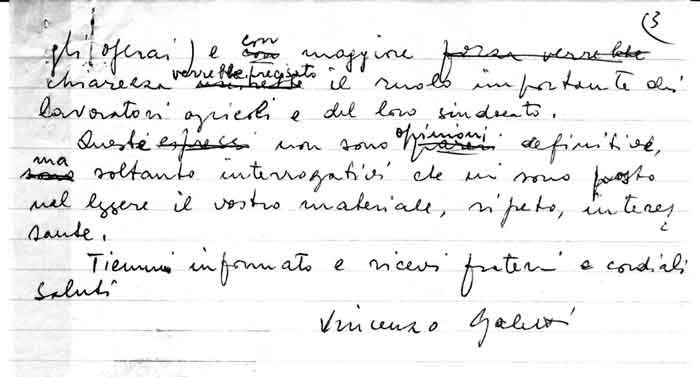 3
gli (operai) e con maggiore forza verrebbe
chiarezza verrebbe precisato il ruolo importante dei
lavoratori agricoli e del loro sindacato.
Queste espressi non sono opinioni pareri definitive,
ma sono soltanto interrogativi che mi sono posto
nel leggere il vostro materiale, ripeto, interes
sante.
Tienmi informato e ricevi fraterni e cordiali
saluti
Vincenzo Galetti